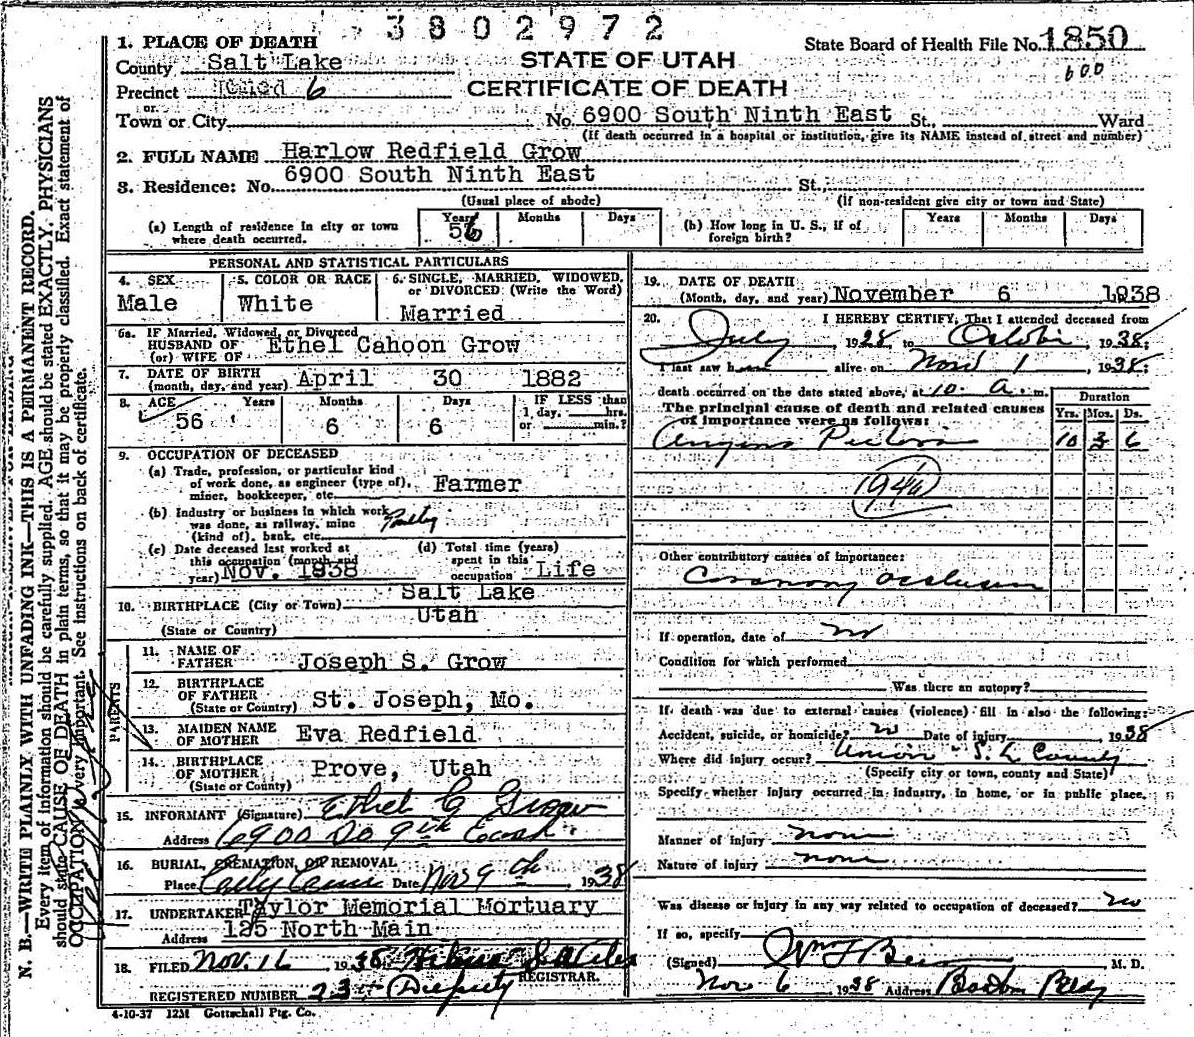 3802972
1. PLACE OF DEATH
State Board of Health File No. 1850
600
County Salt Lake
STATE OF UTAH
Precinct 6
CERTIFICATE OF DEATH
or
Town or City No. 6900 South Ninth East St., Ward
(If death occurred in a hospital or institution, give its NAME instead of street and number)
2. FULL NAME Harlow Redfield Grow
3. Residence: No. 6900 South Ninth East St.,
(Usual place of abode) (If non-resident give city or town and State)
(a) Length of residence in city or town where death occurred. Years 56 Months Days
(b) How long in U. S., if of foreign birth? Years Months Days
PERSONAL AND STATISTICAL PARTICULARS
4. SEX Male
5. COLOR OR RACE White
6. SINGLE, MARRIED, WIDOWED, or DIVORCED (Write the Word) Married
6a. IF Married, Widowed, or Divorced
HUSBAND OF
(or) WIFE OF Ethel Cahoon Grow
7. DATE OF BIRTH
(month, day, and year) April 30 1882
8. AGE Years Months Days IF LESS than
56 6 6 1 day, hrs.
or min.?
9. OCCUPATION OF DECEASED
(a) Trade, profession, or particular kind
of work done, as engineer (type of),
miner, bookkeeper, etc. Farmer
(b) Industry or business in which work
was done, as railway, mine
(kind of), bank, etc. Poultry
(c) Date deceased last worked at
this occupation (month and
year) Nov. 1938
(d) Total time (years)
spent in this
occupation Life
10. BIRTHPLACE (City or Town) Salt Lake
(State or Country) Utah
PARENTS
11. NAME OF
FATHER Joseph S. Grow
12. BIRTHPLACE
OF FATHER
(State or Country) St. Joseph, Mo.
13. MAIDEN NAME
OF MOTHER Eva Redfield
14. BIRTHPLACE
OF MOTHER
(State or County) Prove, Utah
15. INFORMANT (Signature) Ethel C Grow
Address 6900 So 9th East
16. BURIAL, CREMATION, OR REMOVAL
Place Date Nov 9th, 1938
17. UNDERTAKER Taylor Memorial Mortuary
Address 125 North Main
18. FILED Nov. 16, 1938
REGISTRAR.
REGISTERED NUMBER 23 (Deputy
4-10-37 12M Gottschall Ptg. Co.
19. DATE OF DEATH
(Month, day, and year) November 6 1938
20. I HEREBY CERTIFY, That I attended deceased from
July, 1928 to October, 1938;
I last saw h alive on Nov 1, 1938;
death occurred on the date stated above, at 10. A. m.
The principal cause of death and related causes
of importance were as follows:
Duration
Yrs. Mos. Ds.
Angina Pectoris 10 3 6
Other contributory causes of importance:
Coronary occlusion
If operation, date of no
Condition for which performed
Was there an autopsy?
If death was due to external causes (violence) fill in also the following:
Accident, suicide, or homicide? no Date of injury 1938
Where did injury occur? Union S. L County
(Specify city or town, county and State)
Specify whether injury occurred in industry, in home, or in public place.
Manner of injury none
Nature of injury none
Was disease or injury in any way related to occupation of deceased? no
If so, specify
(Signed) M. D.
Nov 6 1938 Address
N. B.—WRITE PLAINLY, WITH UNFADING INK—THIS IS A PERMANENT RECORD.
Every item of information should be carefully supplied. AGE should be stated EXACTLY. PHYSICIANS
should state CAUSE OF DEATH in plain terms, so that it may be properly classified. Exact statement of
OCCUPATION is very important. See instructions on back of certificate.